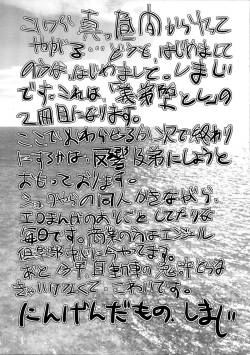 こいつら真っ昼間からやって
やがる…どうも、はじめまして
の方は、はじめまして。しまじ
です。これは、「義弟堕とし」の
2冊目になります。
ここでおわらせるか次で終わり
にするかは、反響次第にしようと
おもっております。
ショタがらの同人かきながら、
エロまんがのおしごとしてたりな
毎日です。商業の方はエンジェール
倶楽部さまに今やってます。
あと今年自動車の免許とらな
きゃいけなくて、こわいです。
にんげんだもの、しまじ